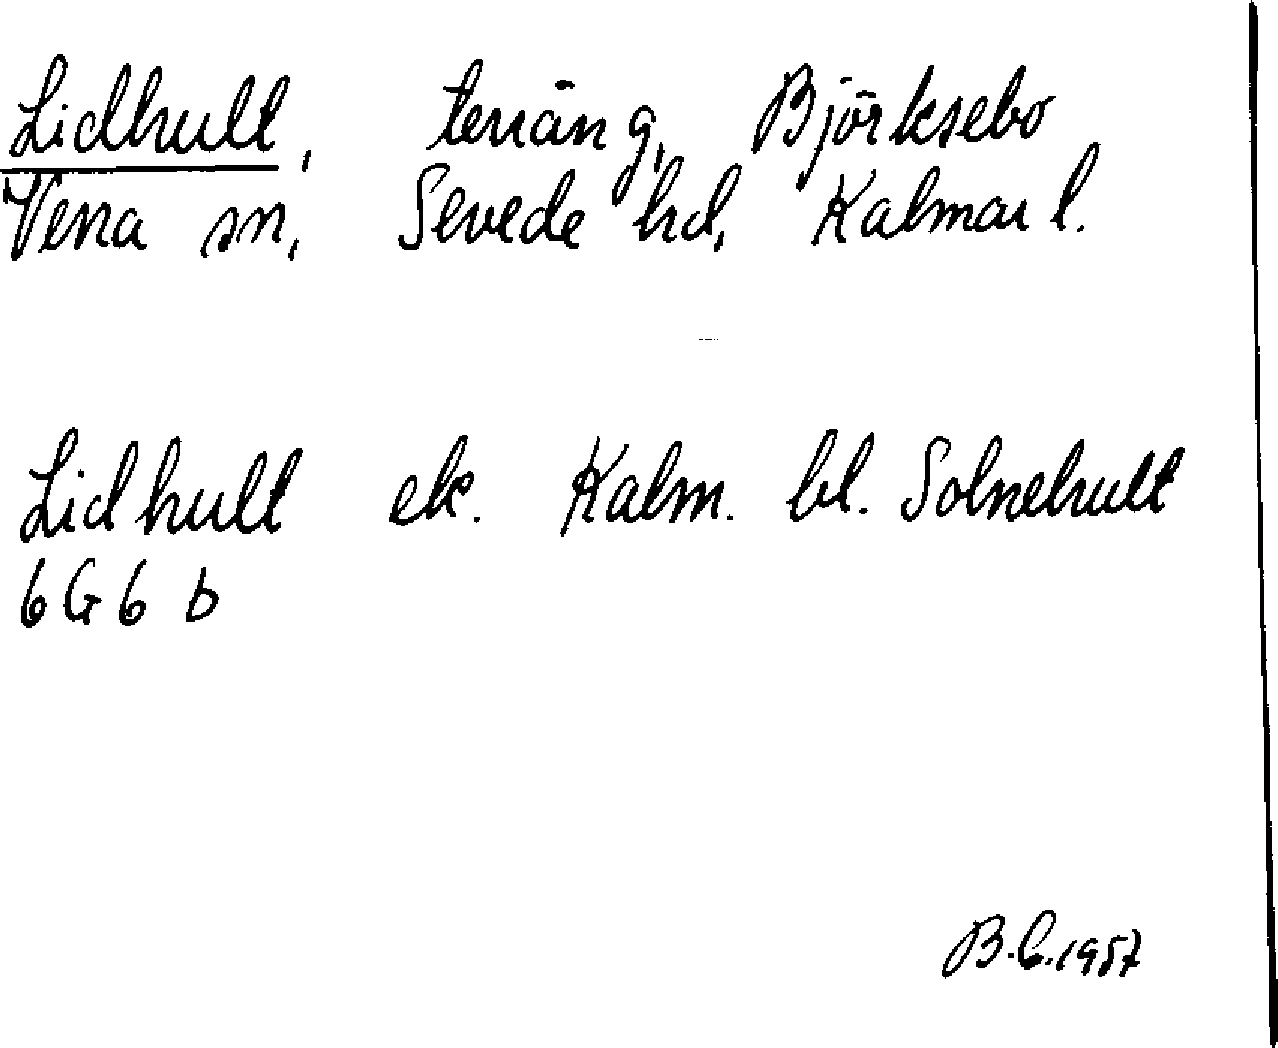 Lidhult, terräng, Björksebo
Vena sn, Sevede hd, Kalmar l.
Lidhult ek. Kalm. bl. Solnehult
6G6 b
B.C. 1957